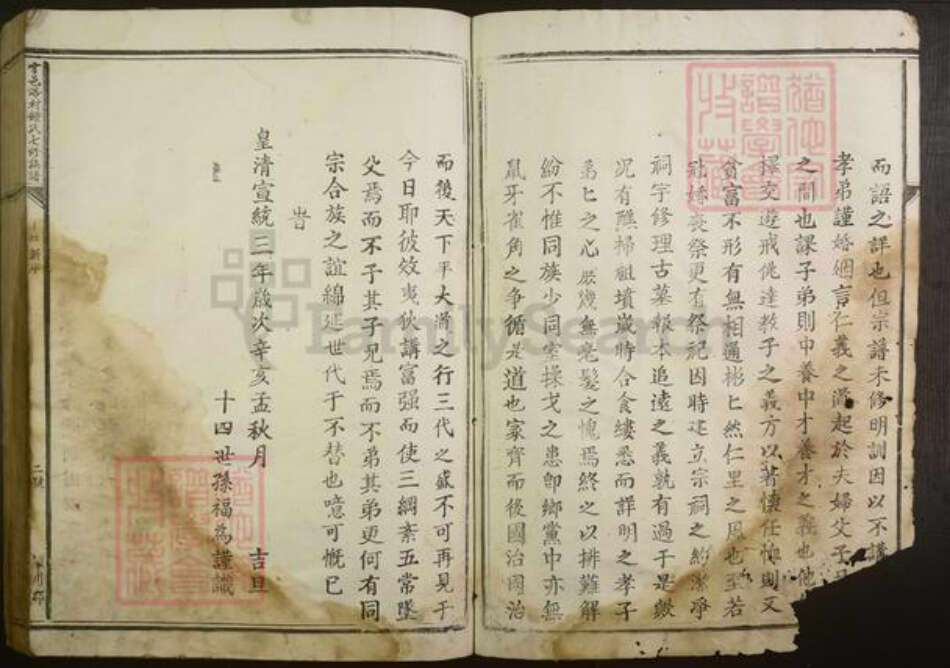 而語之詳也但宗譜未修明訓因以不講
孝弟謹婚姻言仁義之 起於夫婦父子
之間也課子弟則中養中才養才之義也他
擇交遊戒佻達教子之義方以著懷任恤則又
貧富不形有無相通彬匕然仁里之風也至若
冠婚喪祭更有祭祀因時建立宗祠之約潔淨
祠宇修理古墓報本追遠之義孰有過于是歟
況有醮掃祖墳歲時合食縷悉而詳明之孝子
弟匕之心 幾無毫髮之愧焉終之以排難解
紛不惟同族少同室操戈之患卽鄉黨中亦無
鼠牙雀角之争循是道也家齊而後國治國治
而後天下平大道之行三代之盛不可再見于
今日耶彼效夷狄講富强而使三綱紊五常墜
父焉而不子其子兄焉而不弟其弟更何有同
宗合族之誼綿延世代于不替也噫可慨已
旹
皇清宣統三年歲次辛亥孟秋月 吉旦
十四世孫福為謹識
氏七修族譜
新序
二號
FamilySearch